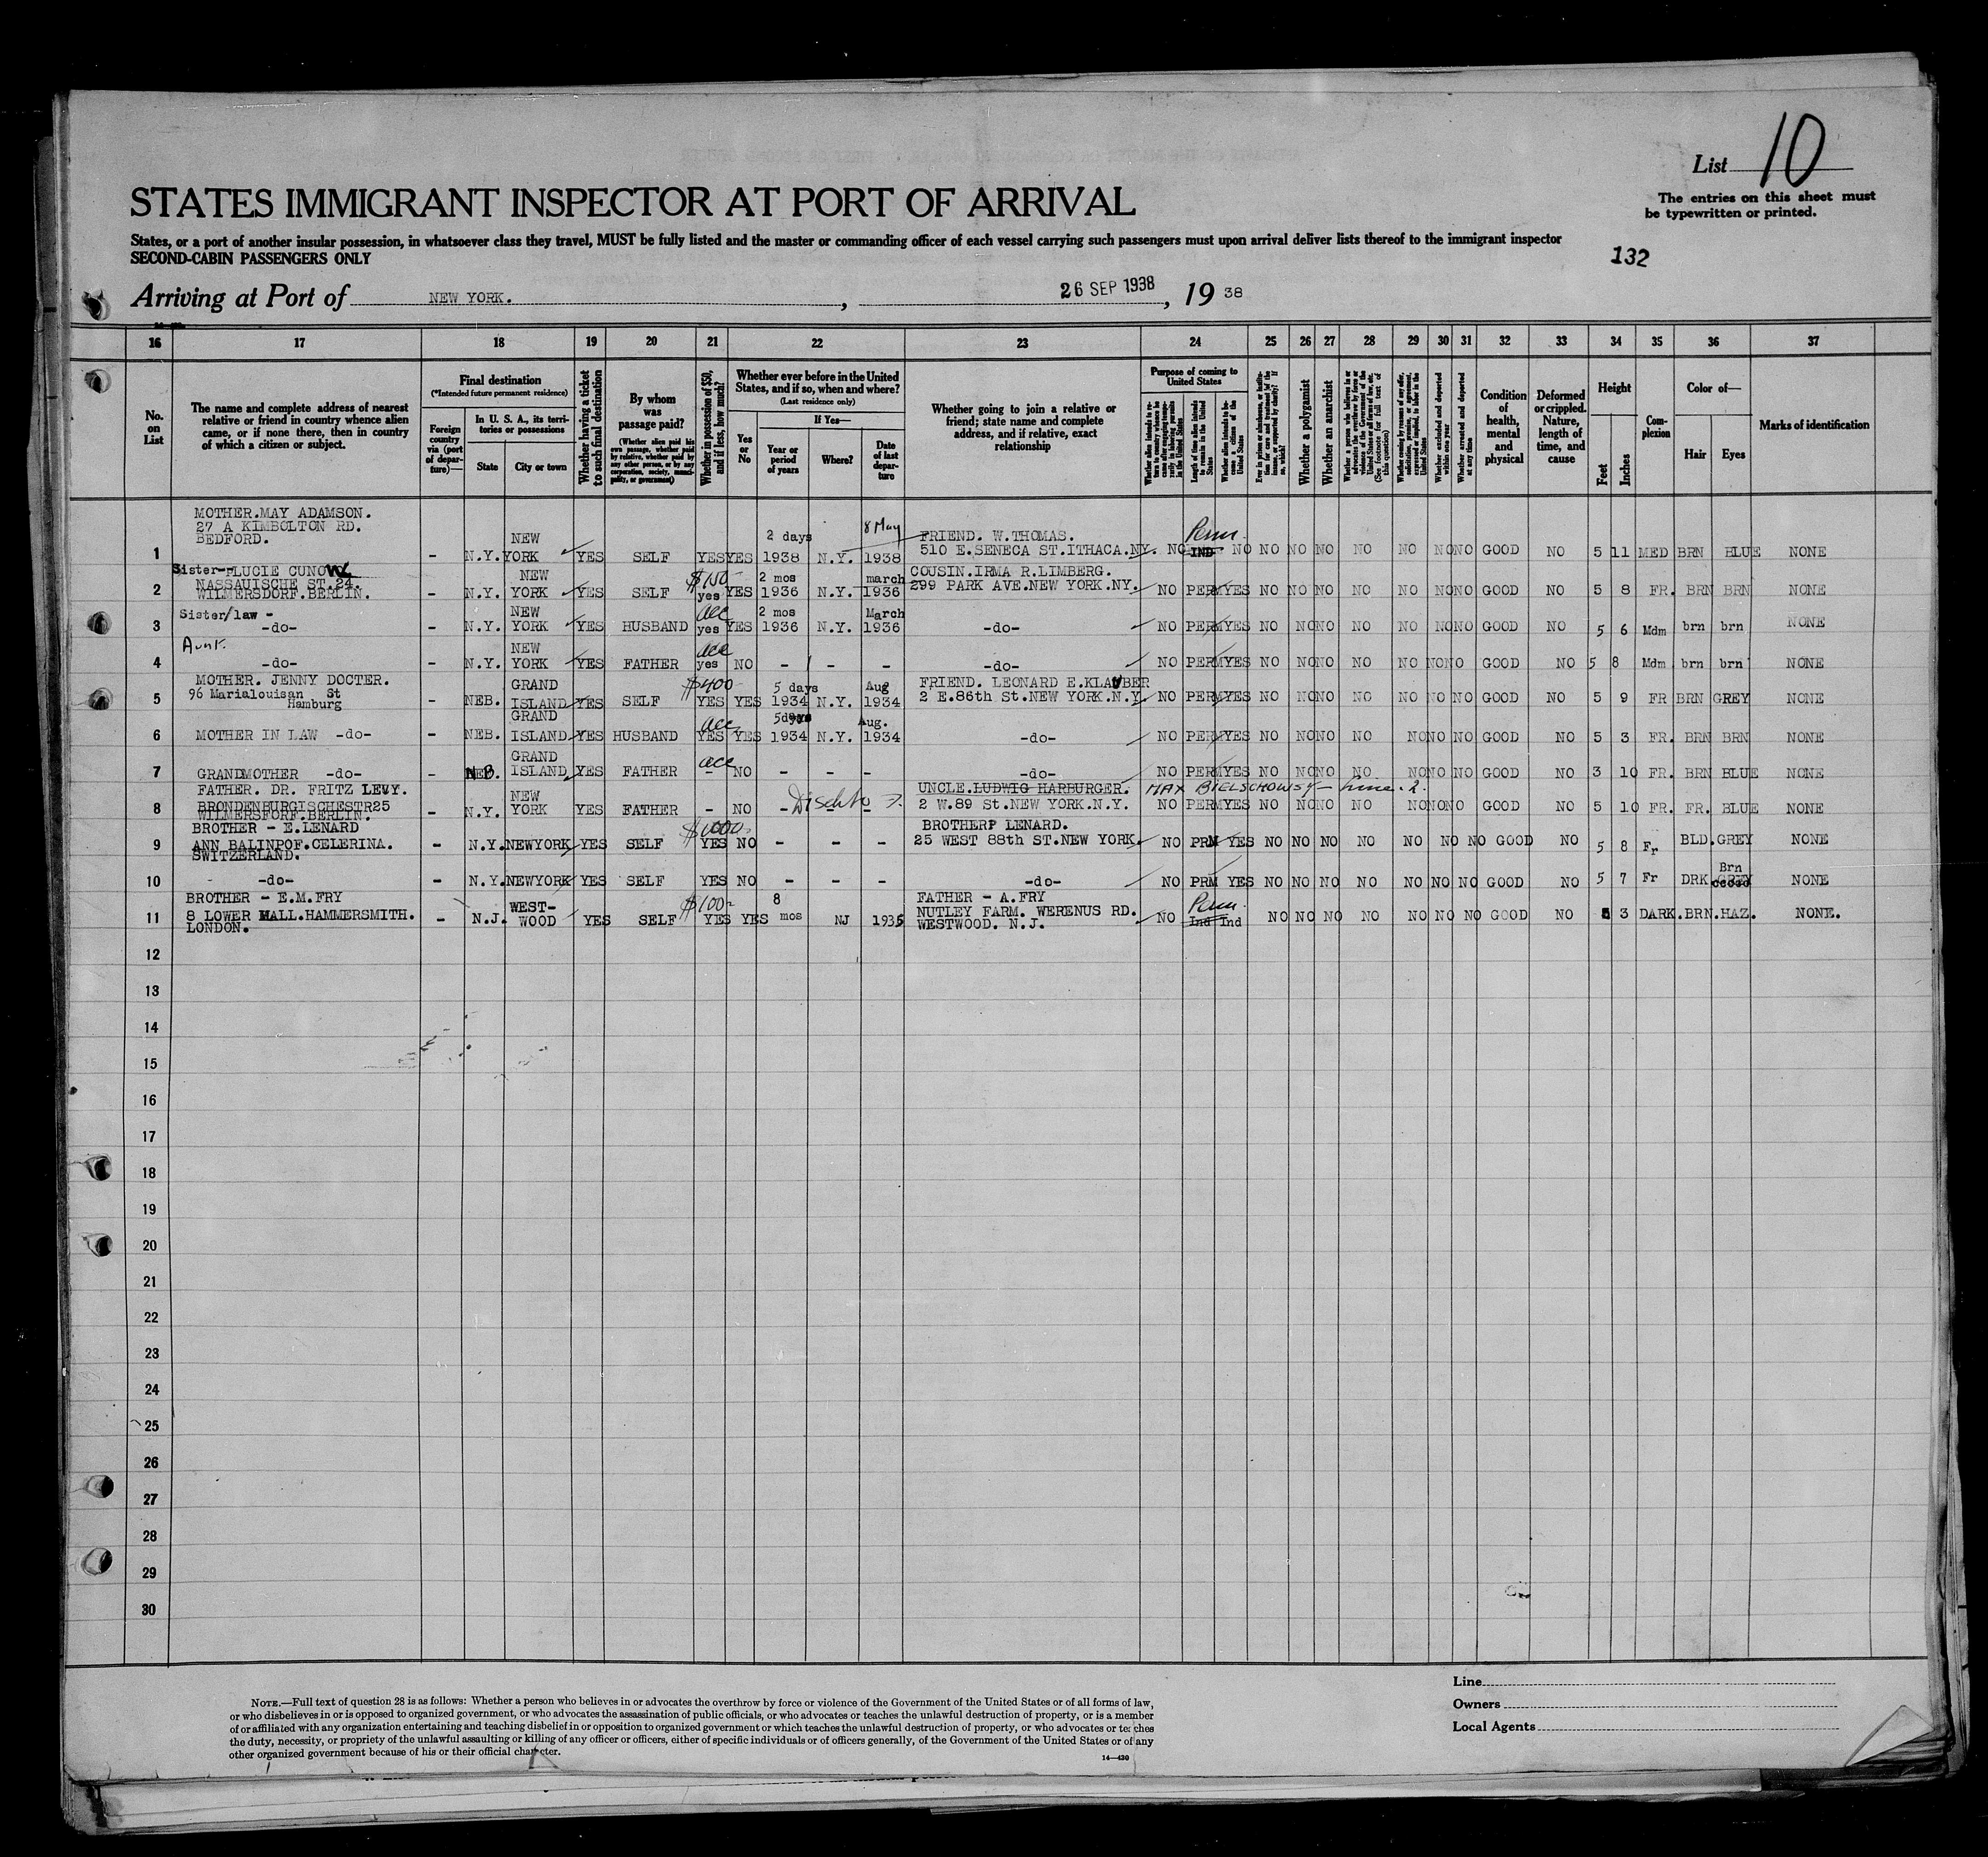 List 10
The entries on this sheet must
be typewritten or printed.
STATES IMMIGRANT INSPECTOR AT PORT OF ARRIVAL
States, or a port of another insular possession, in whatsoever class they travel, MUST be fully listed and the master or commanding officer of each vessel carrying such passengers must upon arrival deliver lists thereof to the immigrant inspector
SECOND-CABIN PASSENGERS ONLY
132
Arriving at Port of NEW YORK. , 26 SEP 1938 , 19 38
16 17 18 19 20 21 22 23 24 25 26 27 28 29 30 31 32 33 34 35 36 37
No. on List
The name and complete address of nearest relative or friend in country whence alien came, or if none there, then in country of which a citizen or subject.
Final destination
(*Intended future permanent residence)
Foreign country via (port of departure)—
In U. S. A., its territories or possessions
State
City or town
Whether having a ticket to such final destination
By whom was passage paid?
(Whether alien paid his own passage, whether paid by relative, whether paid by any other person, or by any corporation, society, municipality, or government)
Whether in possession of $50, and if less, how much?
Whether ever before in the United States, and if so, when and where?
(Last residence only)
Yes or No
If Yes—
Year or period of years
Where?
Date of last departure
Whether going to join a relative or friend; state name and complete address, and if relative, exact relationship
Purpose of coming to United States
Whether alien intends to return to country whence he came after engaging temporarily in laboring pursuits in the United States
Length of time alien intends to remain in the United States
Whether alien intends to become a citizen of the United States
Whether a polygamist
Whether an anarchist
(See footnote for full text of this question)
Whether excluded and deported within one year
Whether arrested and deported at any time
Condition of health, mental and physical
Deformed or crippled. Nature, length of time, and cause
Height
Feet
Inches
Complexion
Color of—
Hair
Eyes
Marks of identification
MOTHER.MAY ADAMSON.
27 A KIMBOLTON RD.
BEDFORD.
1 - N.Y. NEW YORK YES SELF YES YES 2 days 1938 N.Y. 8 May 1938 FRIEND. W.THOMAS. 510 E.SENECA ST.ITHACA.NY. NO Perm IND NO NO NO NO NO NO NO NO GOOD NO 5 11 MED BRN BLUE NONE
Sister-LUCIE CUNOW
NASSAUISCHE ST.24.
WILMERSDORF.BERLIN.
2 - N.Y. NEW YORK YES SELF $150 yes YES 2 mos 1936 N.Y. march 1936 COUSIN.IRMA R.LIMBERG. 299 PARK AVE.NEW YORK.NY. NO PERM YES NO NO NO NO NO NO NO GOOD NO 5 8 FR. BRN BRN NONE
Sister/law -
3 -do- - N.Y. NEW YORK YES HUSBAND acc yes YES 2 mos 1936 N.Y. March 1936 -do- NO PERM YES NO NO NO NO NO NO NO GOOD NO 5 6 Mdm brn brn NONE
Aunt.
4 -do- - N.Y. NEW YORK YES FATHER acc yes NO - - - -do- NO PERM YES NO NO NO NO NO NO NO GOOD NO 5 8 Mdm brn brn NONE
MOTHER. JENNY DOCTER.
96 Marialouisan St
Hamburg
5 - NEB. GRAND ISLAND YES SELF $400 YES YES 5 days 1934 N.Y. Aug 1934 FRIEND. LEONARD E.KLAUBER 2 E.86th St.NEW YORK.N.Y. NO PERM YES NO NO NO NO NO NO NO GOOD NO 5 9 FR BRN GREY NONE
6 MOTHER IN LAW -do- - NEB. GRAND ISLAND YES HUSBAND acc YES YES 5days 1934 N.Y. Aug. 1934 -do- NO PERM YES NO NO NO NO NO NO NO GOOD NO 5 3 FR. BRN BRN NONE
7 GRANDMOTHER -do- - NEB. GRAND ISLAND YES FATHER acc - NO - - - -do- NO PERM YES NO NO NO NO NO NO NO GOOD NO 3 10 FR. BRN BLUE NONE
FATHER. DR. FRITZ LEVY.
BRONDENBURGISCHESTR25
WILMERSFORF.BERLIN.
8 - N.Y. NEW YORK YES FATHER - NO - - - UNCLE.LUDWIG HARBURGER. MAX BIELSCHOWSY - 2 W.89 St.NEW YORK.N.Y. NO PERM YES NO NO NO NO NO NO NO GOOD NO 5 10 FR. FR. BLUE NONE
BROTHER - E.LENARD
ANN BALINPOF.CELERINA.
SWITZERLAND.
9 - N.Y. NEWYORK YES SELF $1000 YES NO - - - BROTHER LENARD. 25 WEST 88th ST.NEW YORK. NO PRM YES NO NO NO NO NO NO NO GOOD NO 5 8 Fr BLD. GREY NONE
10 -do- - N.Y. NEWYORK YES SELF YES NO - - - -do- NO PRM YES NO NO NO NO NO NO NO GOOD NO 5 7 Fr DRK Brn GREY NONE
BROTHER - E.M.FRY
8 LOWER MALL.HAMMERSMITH.
LONDON.
11 - N.J. WEST-WOOD YES SELF $100 YES YES 8 mos NJ 1935 FATHER - A.FRY NUTLEY FARM. WERENUS RD. WESTWOOD. N.J. NO Perm Ind Ind NO NO NO NO NO NO NO GOOD NO 5 3 DARK. BRN. HAZ. NONE.
12
13
14
15
16
17
18
19
20
21
22
23
24
25
26
27
28
29
30
NOTE.—Full text of question 28 is as follows: Whether a person who believes in or advocates the overthrow by force or violence of the Government of the United States or of all forms of law,
or who disbelieves in or is opposed to organized government, or who advocates the assassination of public officials, or who advocates or teaches the unlawful destruction of property, or is a member
of or affiliated with any organization entertaining and teaching disbelief in or opposition to organized government or which teaches the unlawful destruction of property, or who advocates or teaches
the duty, necessity, or propriety of the unlawful assaulting or killing of any officer or officers, either of specific individuals or of officers generally, of the Government of the United States or of any
other organized government because of his or their official character.
14—430
Line
Owners
Local Agents